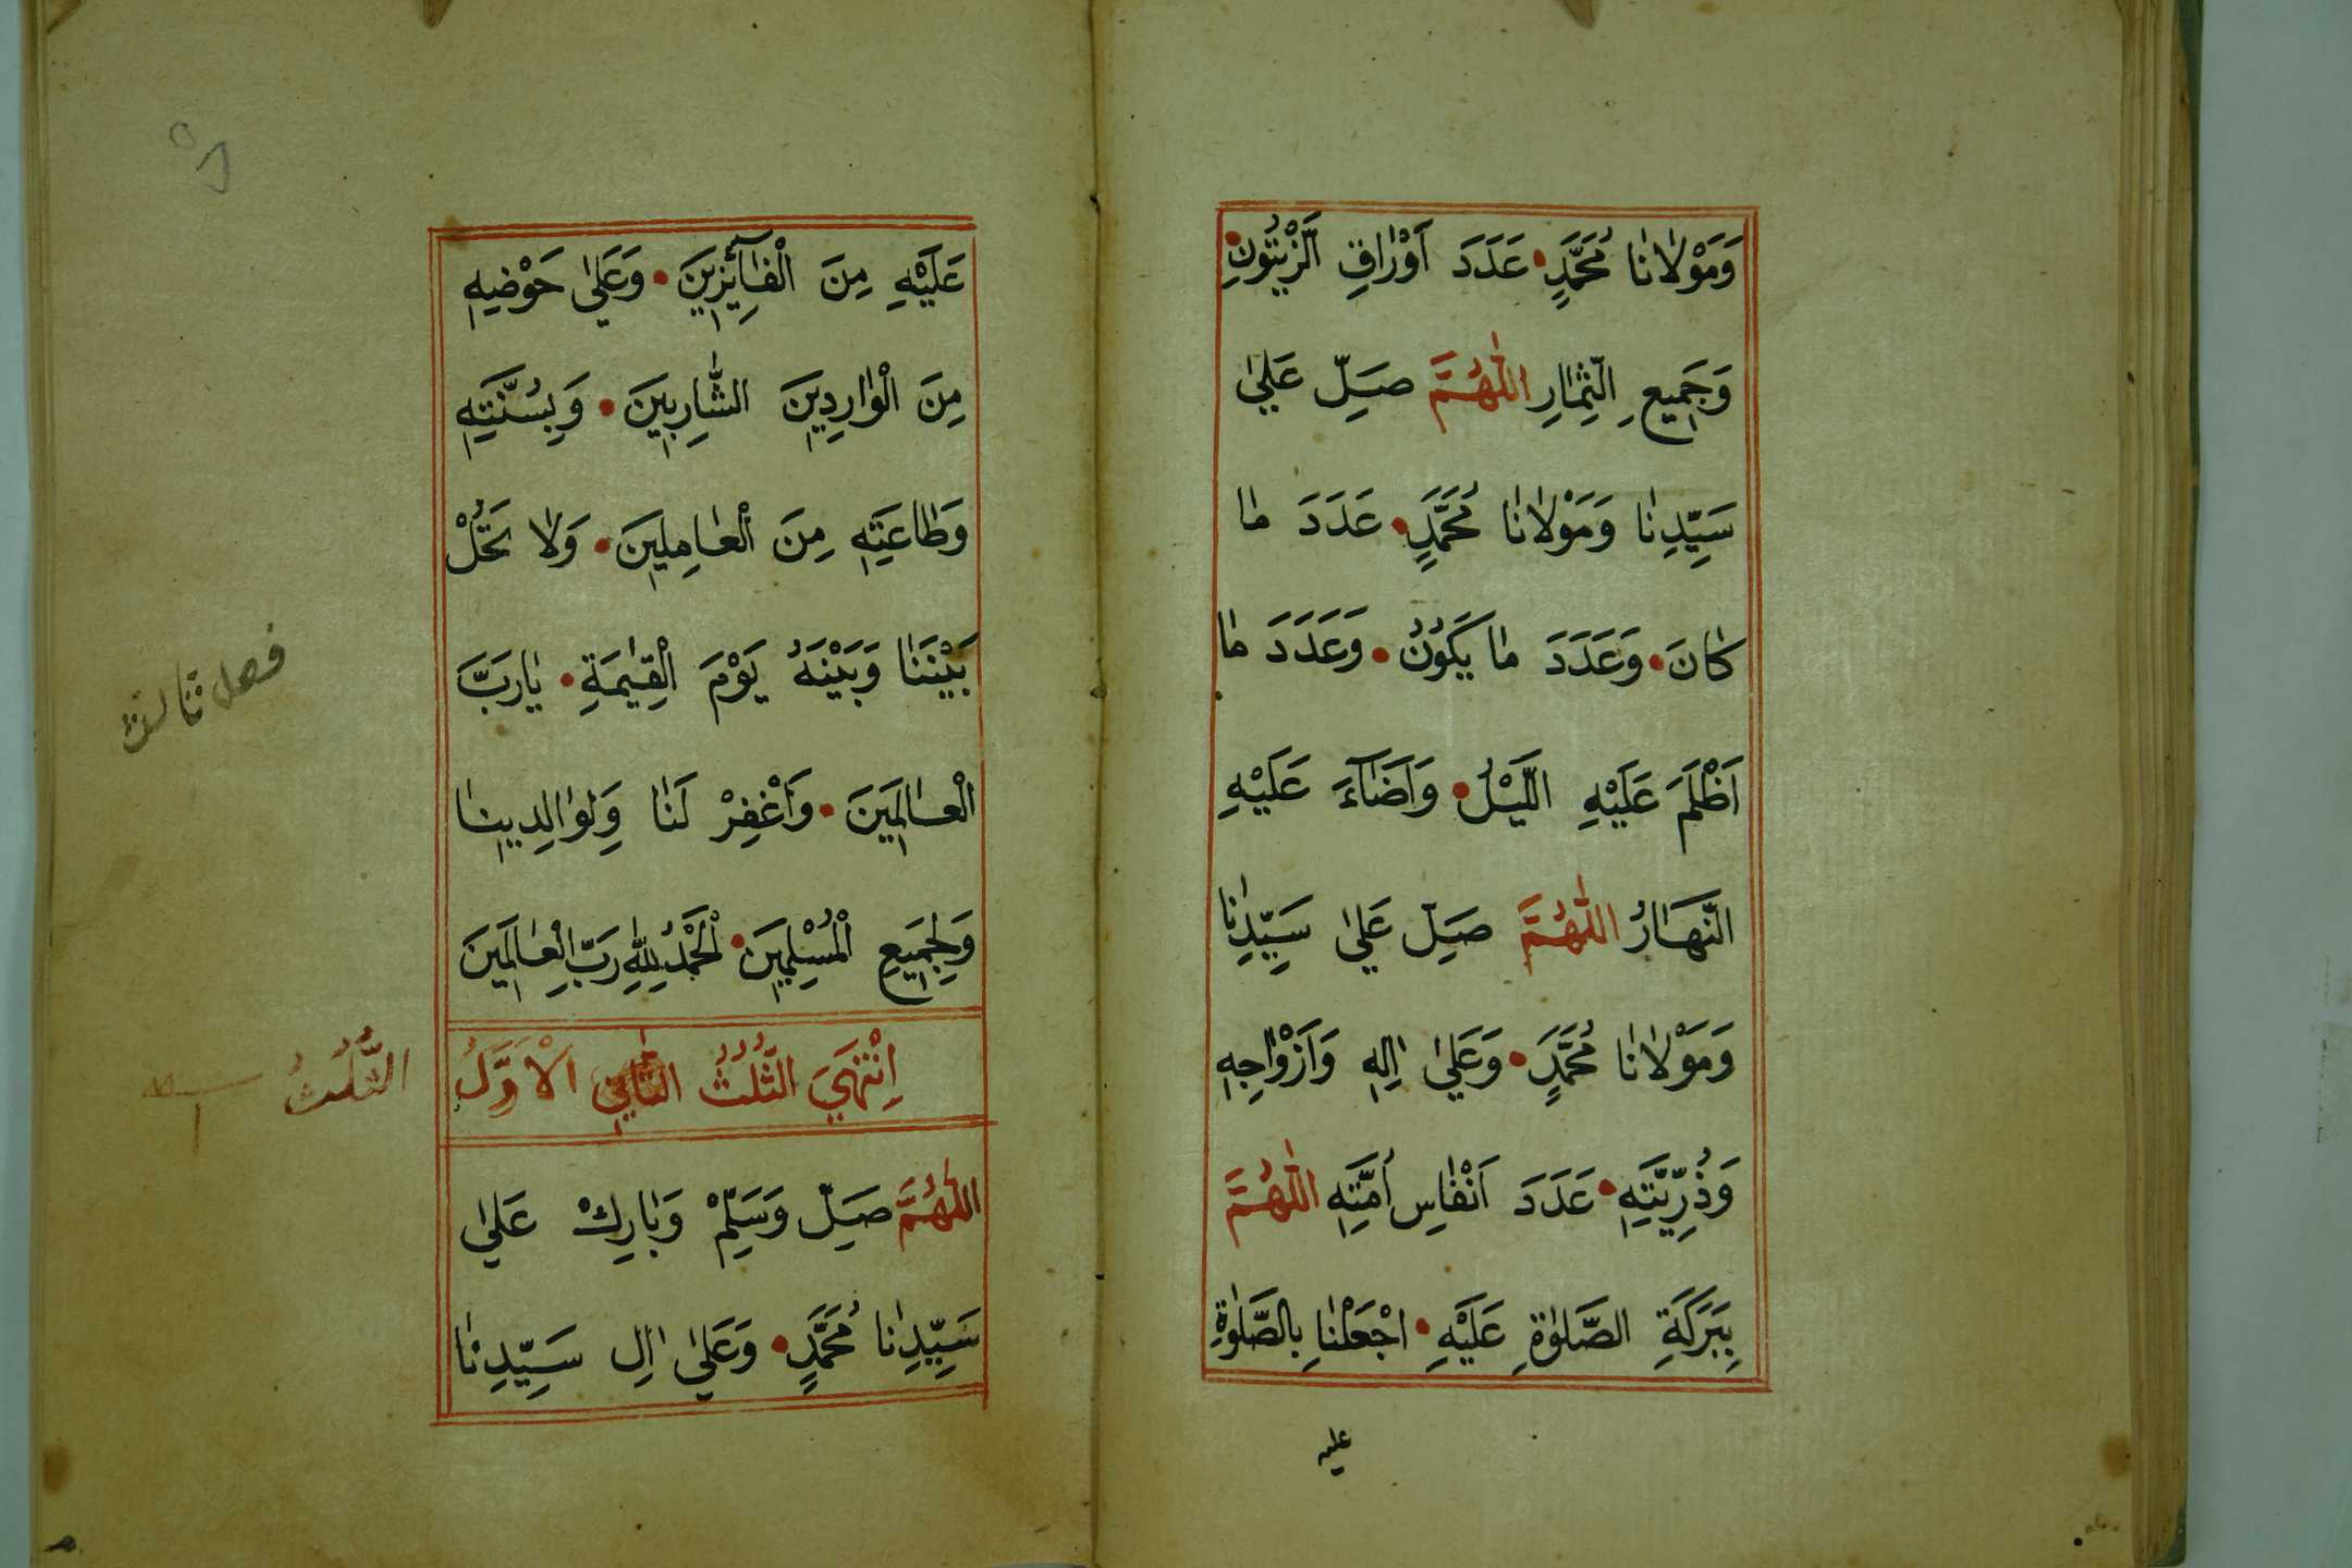 وَمَوْلَانَا مُحَمَّدٍ • عَدَدَ اَوْرَاقِ الزَّيْتُونِ •
وَجَمِيعِ الثِّمَارِ اَللّٰهُمَّ صَلِّ عَلٰى
سَيِّدِنَا وَمَوْلَانَا مُحَمَّدٍ • عَدَدَ مَا
كَانَ • وَعَدَدَ مَا يَكُونُ • وَعَدَدَ مَا
اَظْلَمَ عَلَيْهِ اللَّيْلُ • وَاَضَآءَ عَلَيْهِ
النَّهَارُ اَللّٰهُمَّ صَلِّ عَلٰى سَيِّدِنَا
وَمَوْلَانَا مُحَمَّدٍ • وَعَلٰى اٰلِهِ وَاَزْوَاجِهِ
وَذُرِّيَّتِهِ • عَدَدَ اَنْفَاسِ اُمَّتِهِ اَللّٰهُمَّ
بِبَرَكَةِ الصَّلٰوةِ عَلَيْهِ • اجْعَلْنَا بِالصَّلٰوةِ
عليه
عَلَيْهِ مِنَ الْفَآئِزِينَ • وَعَلٰى حَوْضِهِ
مِنَ الْوَارِدِينَ الشَّارِبِينَ • وَبِسُنَّتِهِ
وَطَاعَتِهِ مِنَ الْعَامِلِينَ • وَلَا تَحُلْ
بَيْنَنَا وَبَيْنَهُ يَوْمَ الْقِيٰمَةِ • يَارَبَّ
الْعَالَمِينَ • وَاغْفِرْ لَنَا وَلِوَالِدِينَا
وَلِجَمِيعِ الْمُسْلِمِينَ • اَلْحَمْدُ لِلّٰهِ رَبِّ الْعَالَمِينَ
اِنْتَهَى الثُّلُثُ الثَّانِي الْاَوَّلُ
الثُّلُثُ
اَللّٰهُمَّ صَلِّ وَسَلِّمْ وَبَارِكْ عَلٰى
سَيِّدِنَا مُحَمَّدٍ • وَعَلٰى اٰلِ سَيِّدِنَا
فصل ثالث